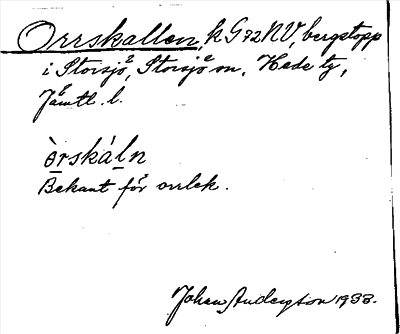 Orrskallen, k G 72 NV, bergstopp
i Storsjö, Storsjö sn, Hede tg,
Jämtl. l.
òrskáln
Bekant för orrlek.
Johan Andersson 1933.